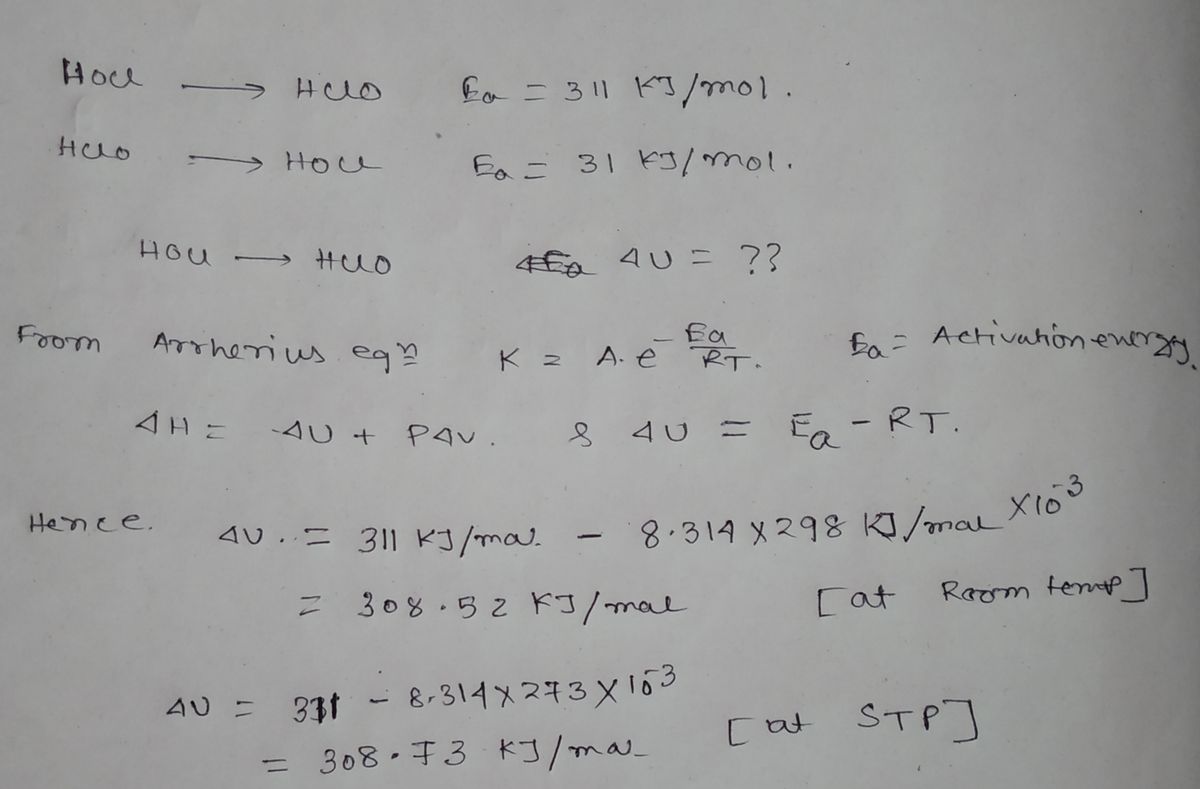 HOCl → HClO Ea = 311 KJ/mol.
HClO → HOCl Ea = 31 KJ/mol.
HOCl → HClO ΔU = ??
From Arrherius eqn K = A.e^-Ea/RT. Ea = Activation energy.
ΔH = ΔU + PΔV. & ΔU = Ea - RT.
Hence. ΔU.. = 311 KJ/mol. - 8.314 x 298 KJ/mol x 10^-3
= 308.52 KJ/mol [at Room temp]
ΔU = 311 - 8.314 x 273 x 10^-3
= 308.73 KJ/mol [at STP]